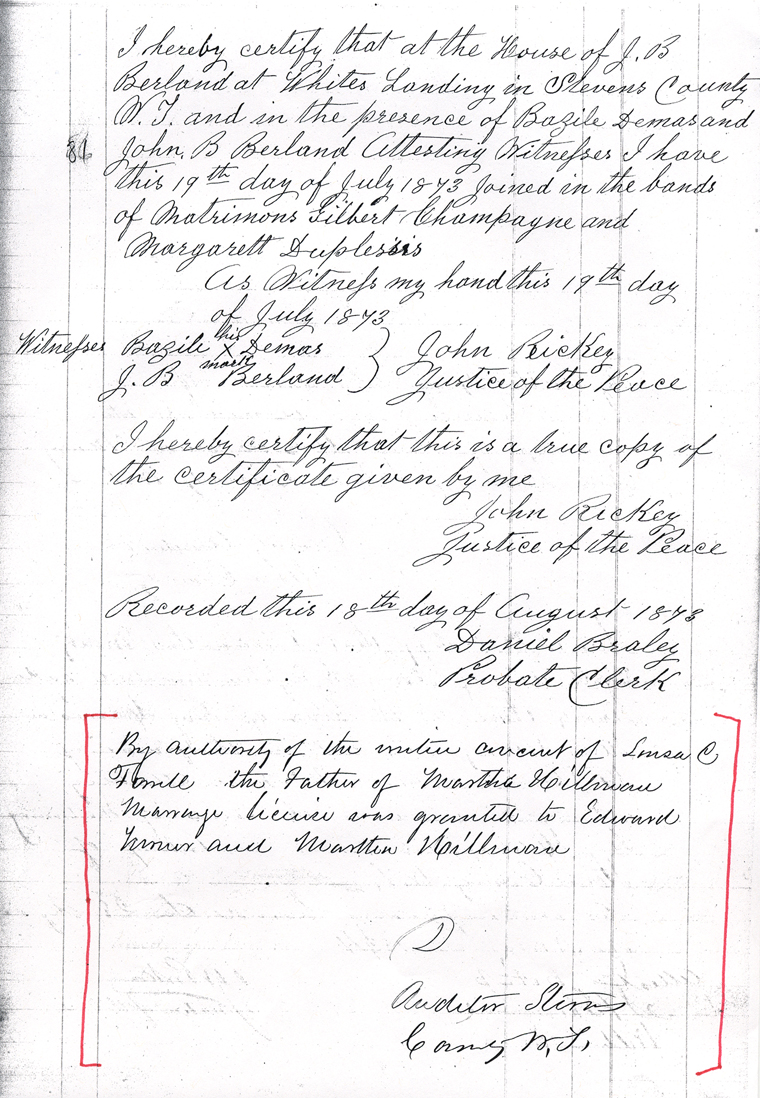 I hereby certify that at the House of J. B
Berland at Whites Landing in Stevens County
W. T. and in the presence of Bazile Demas and
John. B Berland Attesting Witnesses I have
this 19th day of July 1873 Joined in the bands
of Matrimons Gilbert Champagne and
Margarett Duplessis
As Witness my hand this 19th day
of July 1873
Witnesses Bazile his X mark Demas John Rickey
J. B Berland Justice of the Peace
I hereby certify that this is a true copy of
the certificate given by me
John Rickey
Justice of the Peace
Recorded this 18th day of August 1873
Daniel Braley
Probate Clerk
By authority of the of C
the Father of Martha Hillman
Marriage licine was granted to Edward
and Martha Hillman
D
Auditor
W. T.